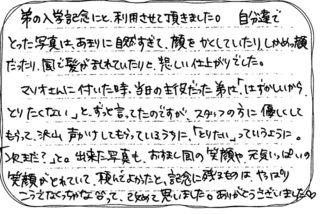 弟の入学記念にと、利用させて頂きました。 自分達で
とった写真は、あまりに自然すぎて、顔をかくしていたり、しかめっ顔
だったり、風で髪がみだれていたりと、悲しい仕上がりでした。
マリオさんに付いた時、当日の主役だった弟は「はずかしいから、
とりたくない」と、ずっと言ってたのですが、スタッフの方に優しくして
もらって、沢山 声かけしてもらっているうちに、「とりたい」っていうように。
次まだ?」と。出来た写真も、おすまし顔の笑顔や元気いっぱいの
笑顔がとれていて、頼んでよかったと、記念に残るものは、やっぱり
こうでなくっちゃかなって、改めて思いました。ありがとうございました